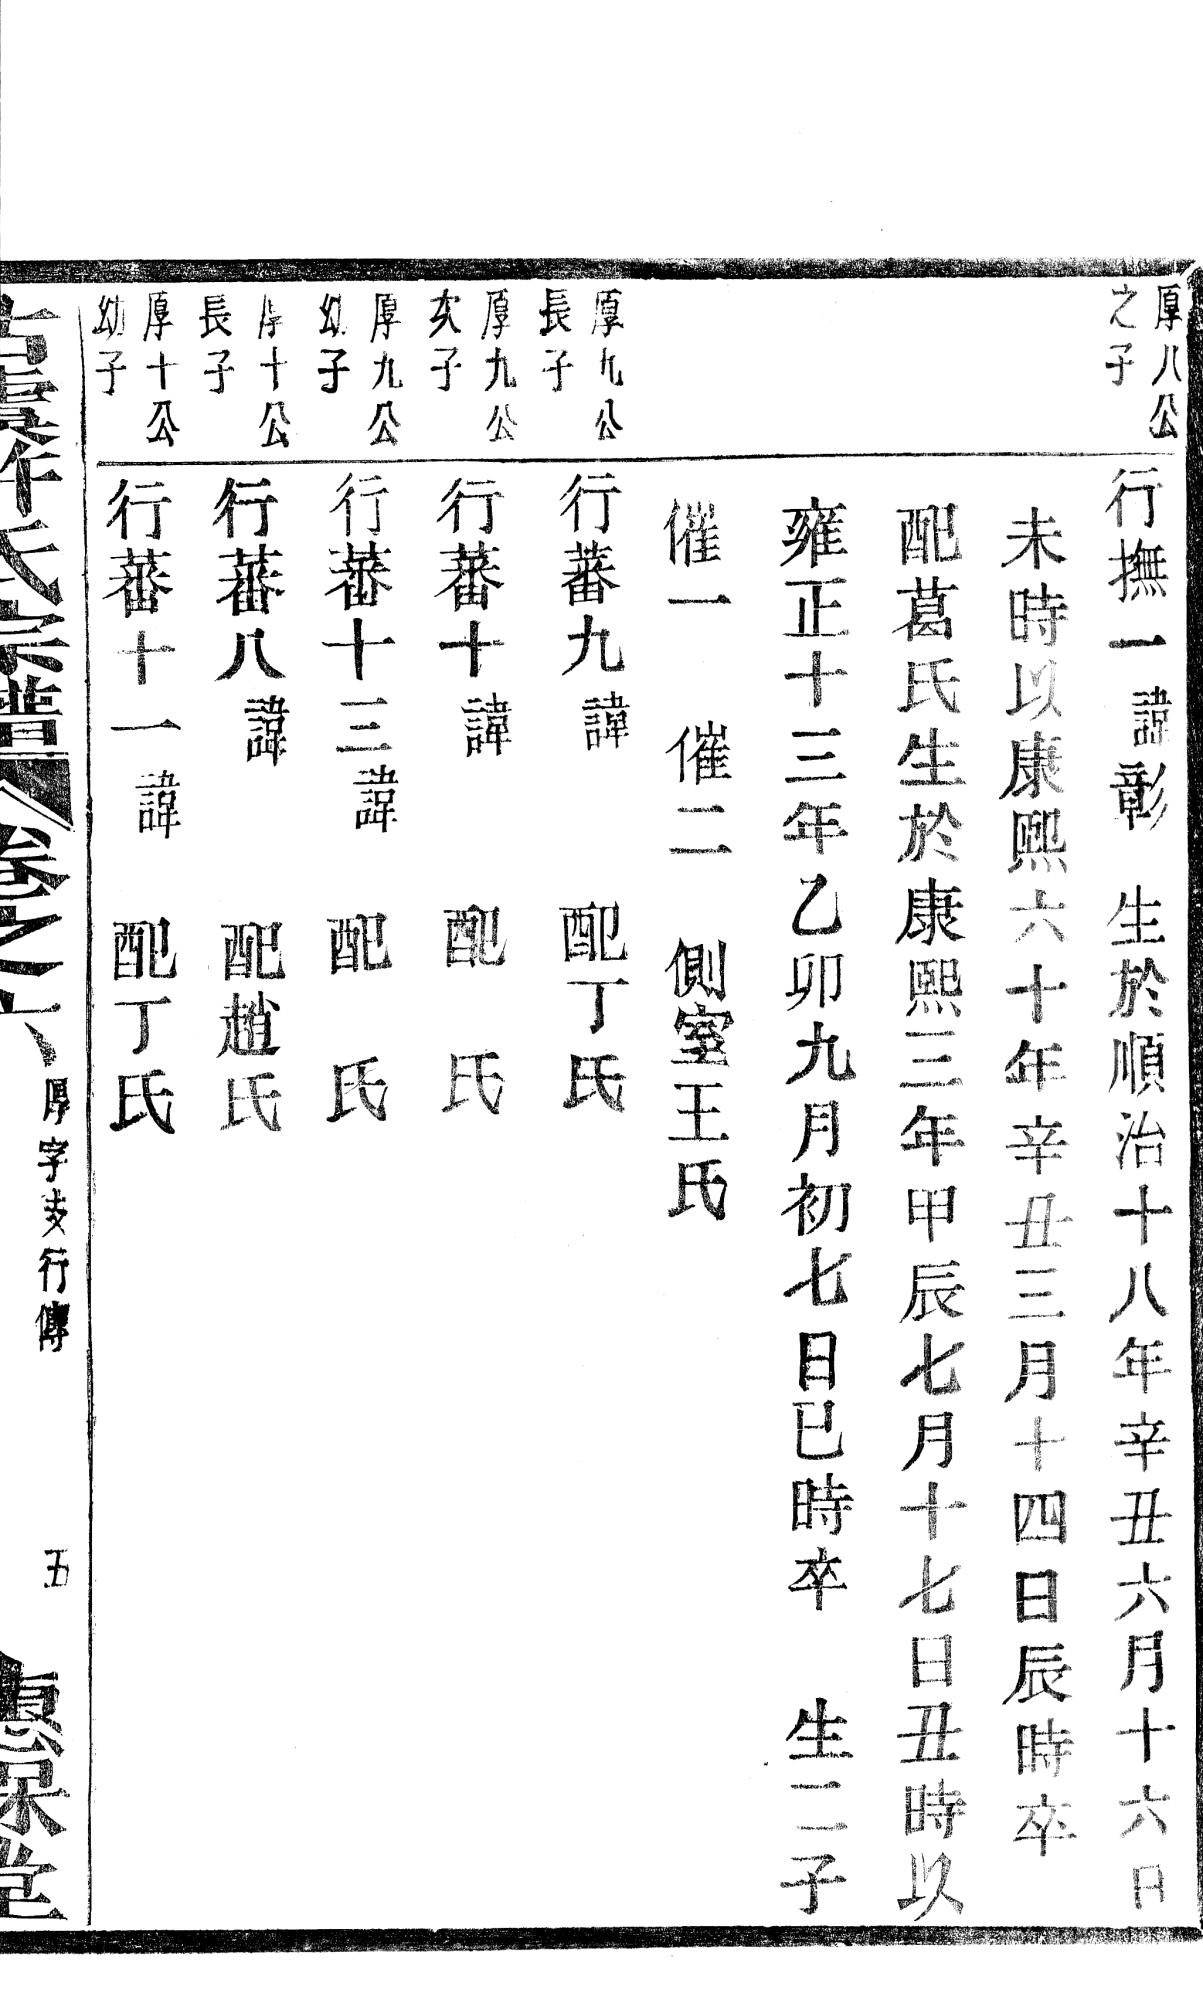 厚八公
之子
行撫一諱彰　生於順治十八年辛丑六月十六日
未時以康熙六十年辛丑三月十四日辰時卒
配葛氏生於康熙三年甲辰七月十七日丑時以
雍正十三年乙卯九月初七日巳時卒　生二子
催一　催二　側室王氏
厚九公
長子
行蕃九諱　配丁氏
厚九公
次子
行蕃十諱　配　氏
厚九公
幼子
行蕃十三諱　配　氏
厚十公
長子
行蕃八諱　配趙氏
厚十公
幼子
行蕃十一諱　配丁氏
氏宗譜　卷之六　厚字支行傳　五　堂